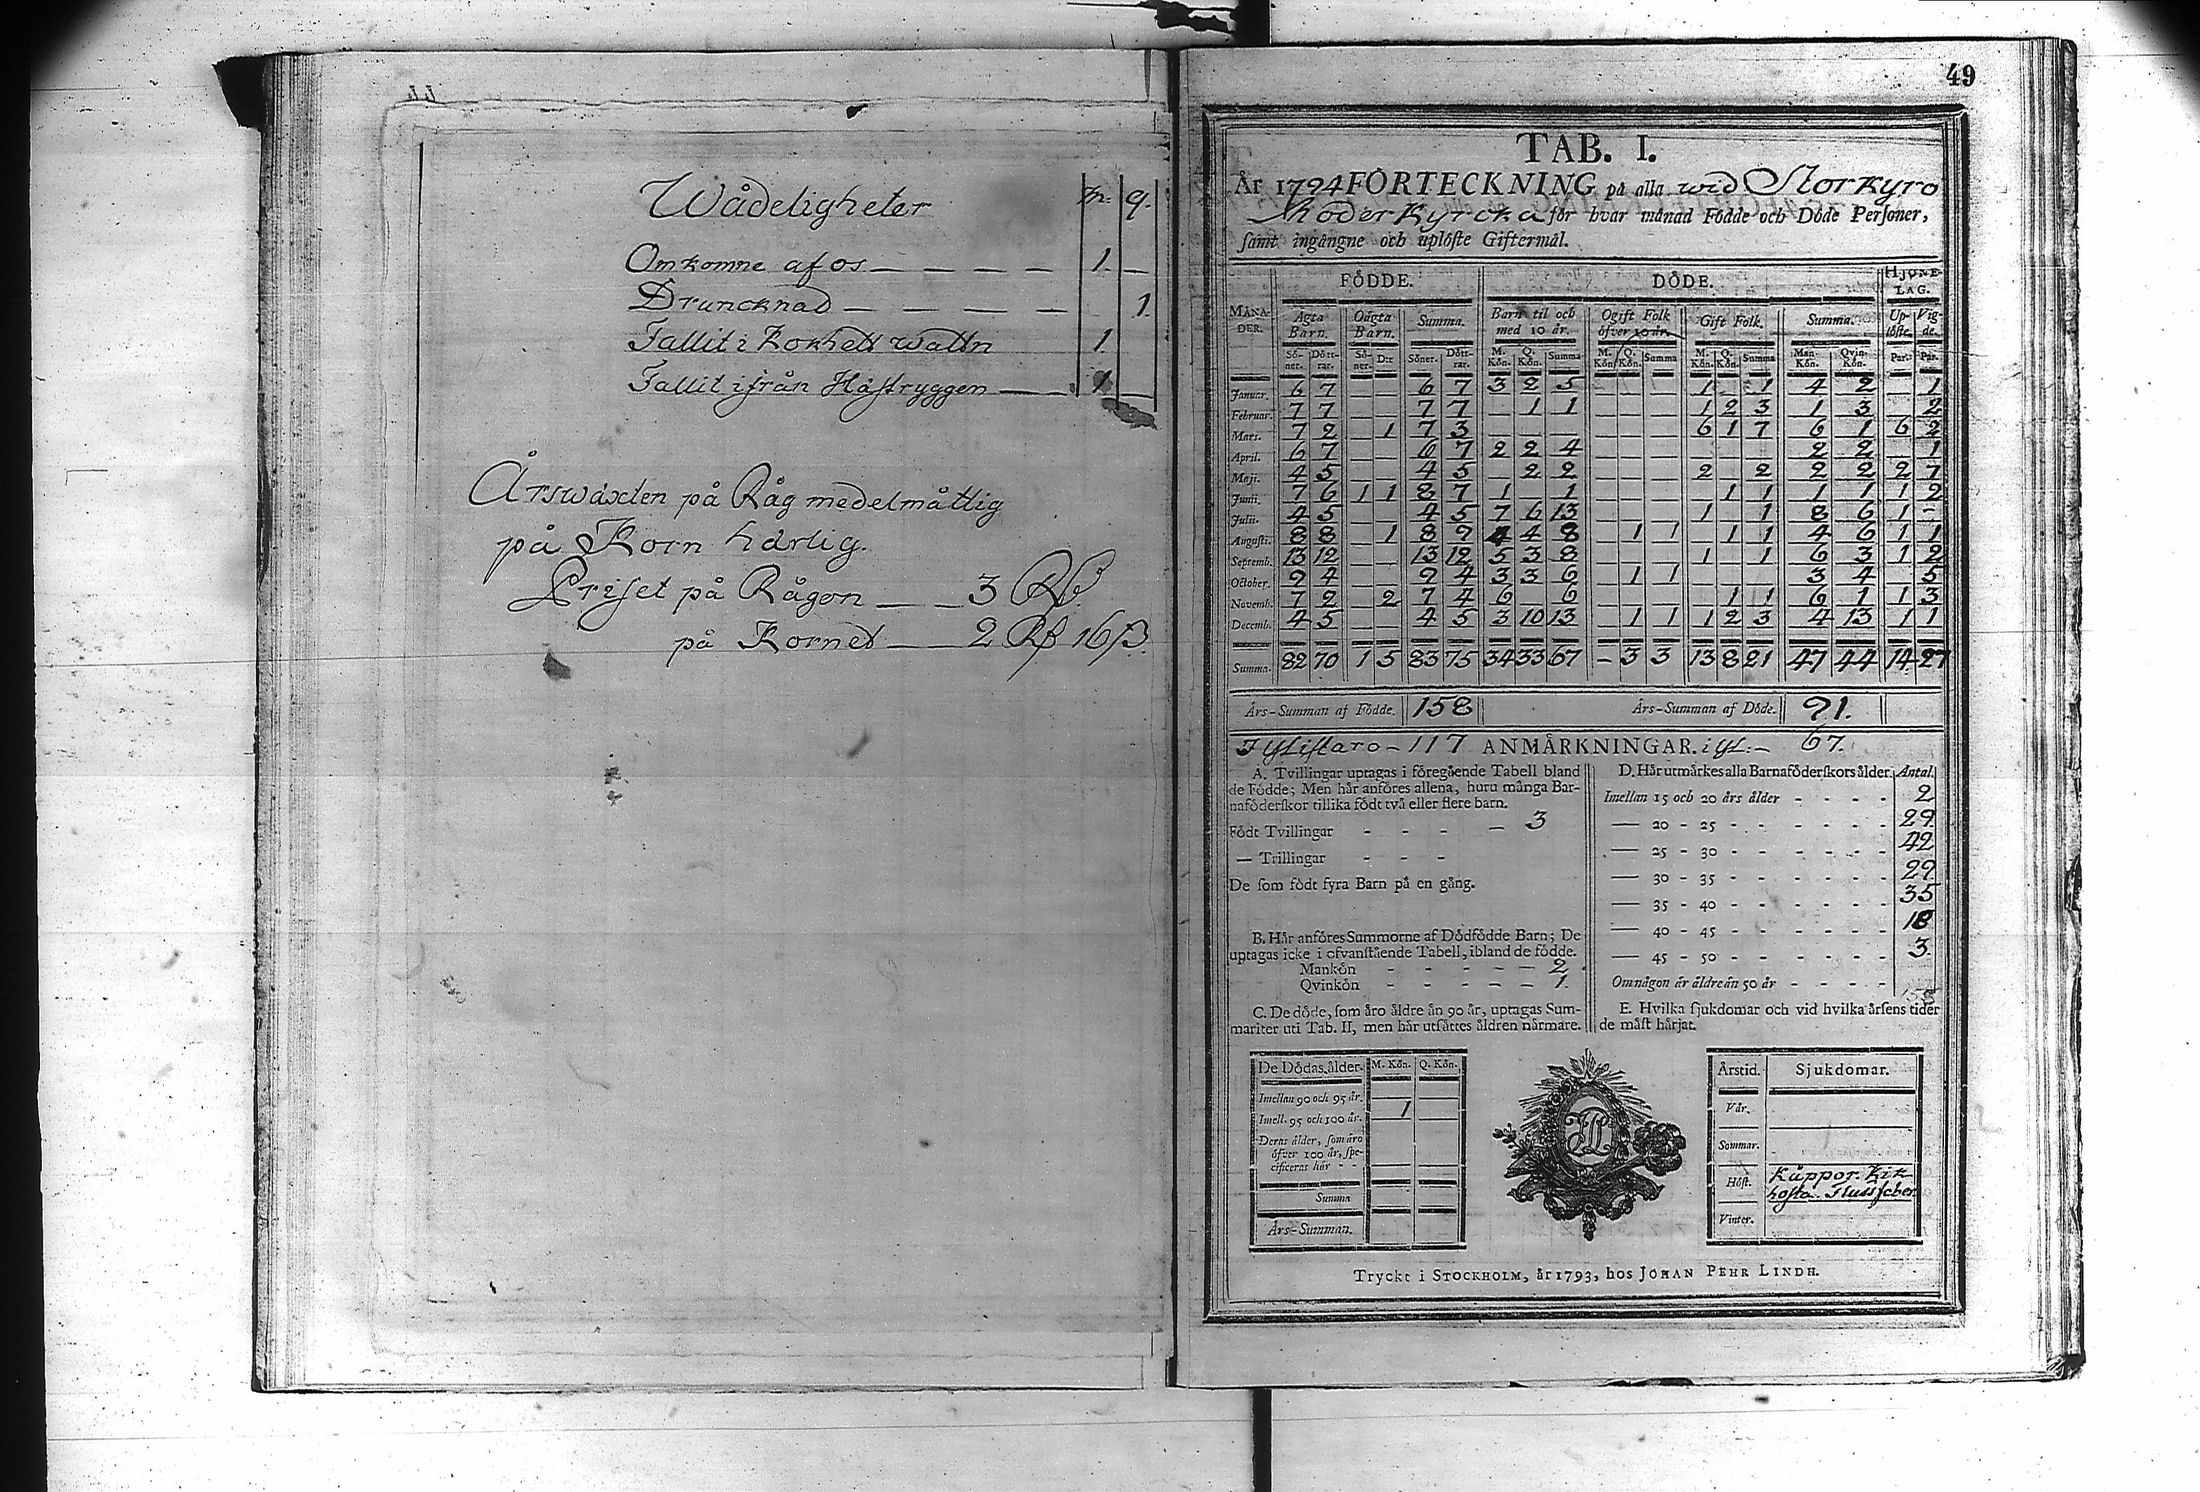 Wådeligheter m. q.
Omkomne af os — — — — 1. —
Druncknad — — — — — 1.
Fallit i Kokhett wattn 1.
Fallit ifrån Hästryggen — — 1 —
Årswäxten på Råg medelmåttig
på Korn härlig.
Priset på Rågen — — 3 Rß.
på Kornet — — 2 Rß 16 ß.
49
TAB. I.
År 1794 FÖRTECKNING på alla wid Storkyro
Moder Kyrcka för hvar månad Födde och Döde Personer,
samt ingångne och uplöste Giftermål.
FÖDDE. DÖDE. HJONE-LAG.
MÅNA-DER. Ägta Barn. Oägta Barn. Summa. Barn til och med 10 år. Ogift Folk öfver 10 år. Gift Folk. Summa. Up-löste. Vig-de.
Sö-ner. Dött-rar. Sö-ner. D:r Söner. Dött-rar. M. Kön. Q. Kön. Summa M. Kön. Q. Kön. Summa M. Kön. Q. Kön. Summa Man-Kön. Qvin-Kön. Par. Par.
Januar. 6 7 — — 6 7 3 2 5 — — — 1 — 1 4 2 — 1
Februar. 7 7 — — 7 7 — 1 1 — — — 1 2 3 1 3 — 2
Mars. 7 2 — 1 7 3 — — — — — — 6 1 7 6 1 6 2
April. 6 7 — — 6 7 2 2 4 — — — — — — 2 2 — 1
Maji. 4 5 — — 4 5 — 2 2 — — — 2 — 2 2 2 2 7
Junii. 7 6 1 1 8 7 1 — 1 — — — — 1 1 1 1 1 2
Julii. 4 5 — — 4 5 7 6 13 — — — 1 — 1 8 6 1 —
Augusti. 8 8 — 1 8 9 4 4 8 — 1 1 — 1 1 4 6 1 1
Septemb. 13 12 — — 13 12 5 3 8 — — — 1 — 1 6 3 1 2
October. 9 4 — — 9 4 3 3 6 — 1 1 — — — 3 4 — 5
Novemb. 7 2 — 2 7 4 6 — 6 — — — — 1 1 6 1 1 3
Decemb. 4 5 — — 4 5 3 10 13 — 1 1 1 2 3 4 13 1 1
Summa. 82 70 1 5 83 75 34 33 67 — 3 3 13 8 21 47 44 14 27
Års-Summan af Födde. 158 Års-Summan af Döde. 91.
I Ylistaro — 117 ANMÄRKNINGAR. i Yl: — 67.
A. Tvillingar uptagas i föregående Tabell bland
de Födde; Men här anföres allena, huru många Bar-
naföderskor tillika födt två eller flere barn.
Födt Tvillingar - - - — 3
— Trillingar - - -
De som födt fyra Barn på en gång.
B. Här anföres Summorne af Dödfödde Barn; De
uptagas icke i ofvanstående Tabell, ibland de födde.
Mankön - - - — — 2.
Qvinkön - - - — — 1.
C. De döde, som äro äldre än 90 år, uptagas Sum-
mariter uti Tab. II, men här utsättes åldren närmare.
D. Här utmärkes alla Barnaföderskors ålder. Antal.
Imellan 15 och 20 års ålder - - - - 2
— 20 - 25 - - - - - - - 29.
— 25 - 30 - - - - - - - 42
— 30 - 35 - - - - - - - 29
— 35 - 40 - - - - - - - 35
— 40 - 45 - - - - - - - 18
— 45 - 50 - - - - - - - 3.
Om någon är äldre än 50 år - - - -
E. Hvilka sjukdomar och vid hvilka årsens tider
de mäst härjat.
De Dödas ålder. M. Kön. Q. Kön.
Imellan 90 och 95 år.
Imell. 95 och 100 år. 1
Deras ålder, som äro
öfver 100 år, spe-
cificeras här - -
Summa
Års-Summan.
Årstid. Sjukdomar.
Vår.
Sommar.
Höst. Kåppor. Kik-
hosta. Flussfeber
Vinter.
Tryckt i STOCKHOLM, år 1793, hos JOHAN PEHR LINDH.